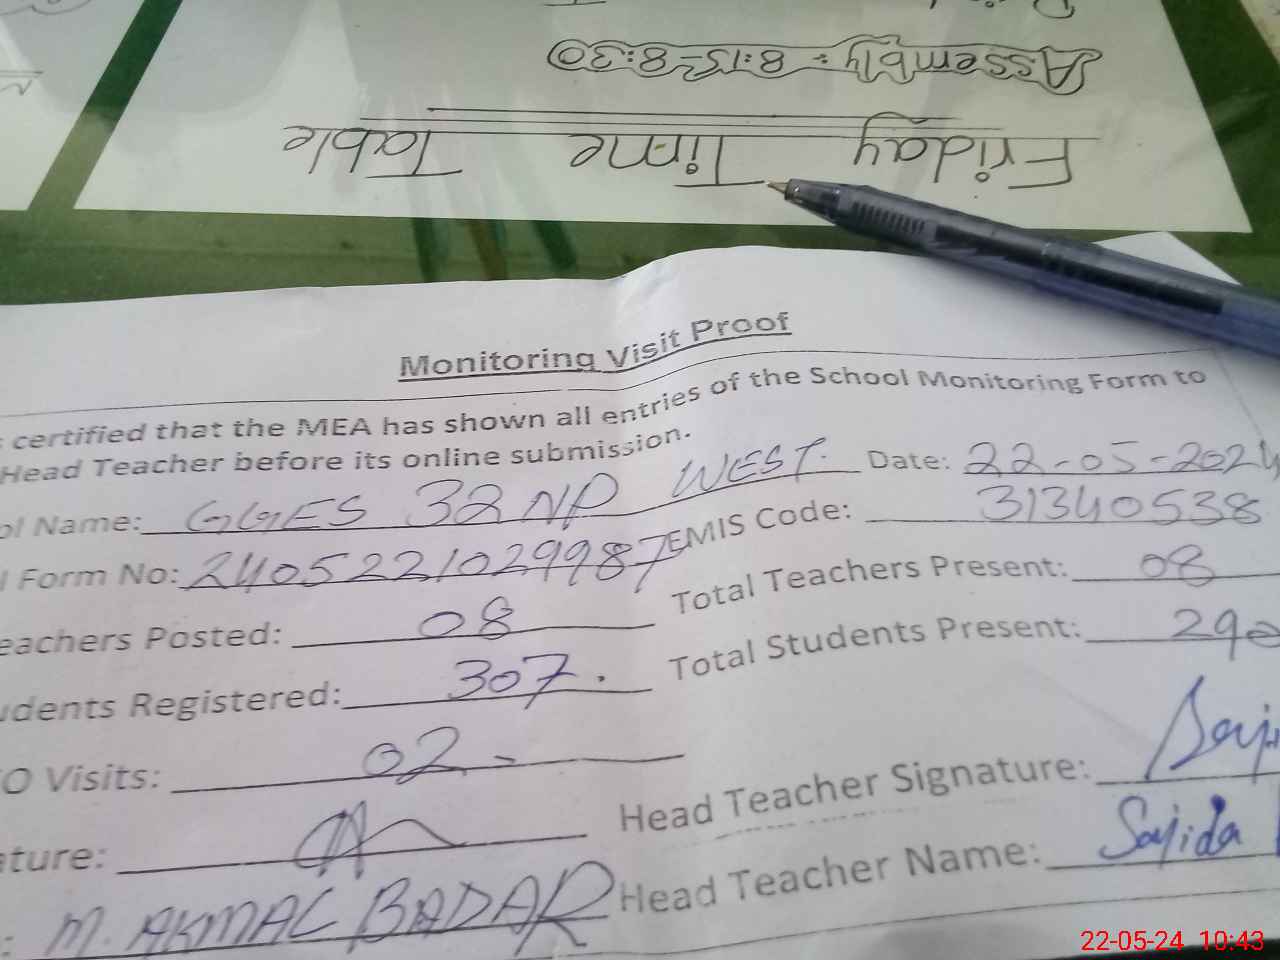 Friday Time Table
Assembly : 8:15-8:30
Monitoring Visit Proof
certified that the MEA has shown all entries of the School Monitoring Form to
Head Teacher before its online submission.
ol Name: GGES 32 NP WEST. Date: 22-05-2024
Form No: 2405221029987 EMIS Code: 31340538
eachers Posted: 08 Total Teachers Present: 08
udents Registered: 307. Total Students Present: 290
O Visits: 02-
ature: Head Teacher Signature:
: M. AKMAL BADAR Head Teacher Name: Sajida
22-05-24 10:43